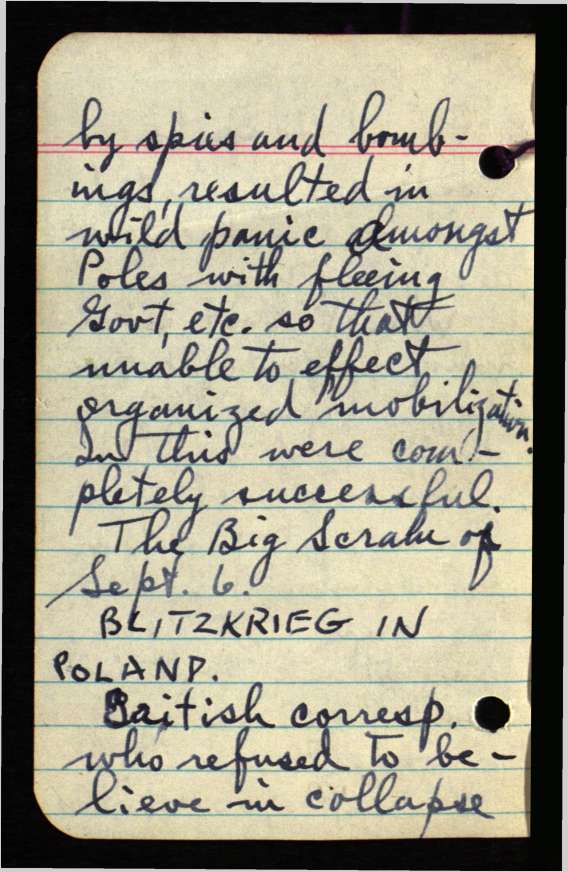 by spies and bomb-
ings, resulted in
wild panic amongst
Poles with fleeing
Govt, etc. so that
unable to effect
organized mobilization.
In this were com-
pletely successful.
The Big Scram of
Sept. 6.
BLITZKRIEG IN
POLAND.
British corresp.
who refused to be-
lieve in collapse